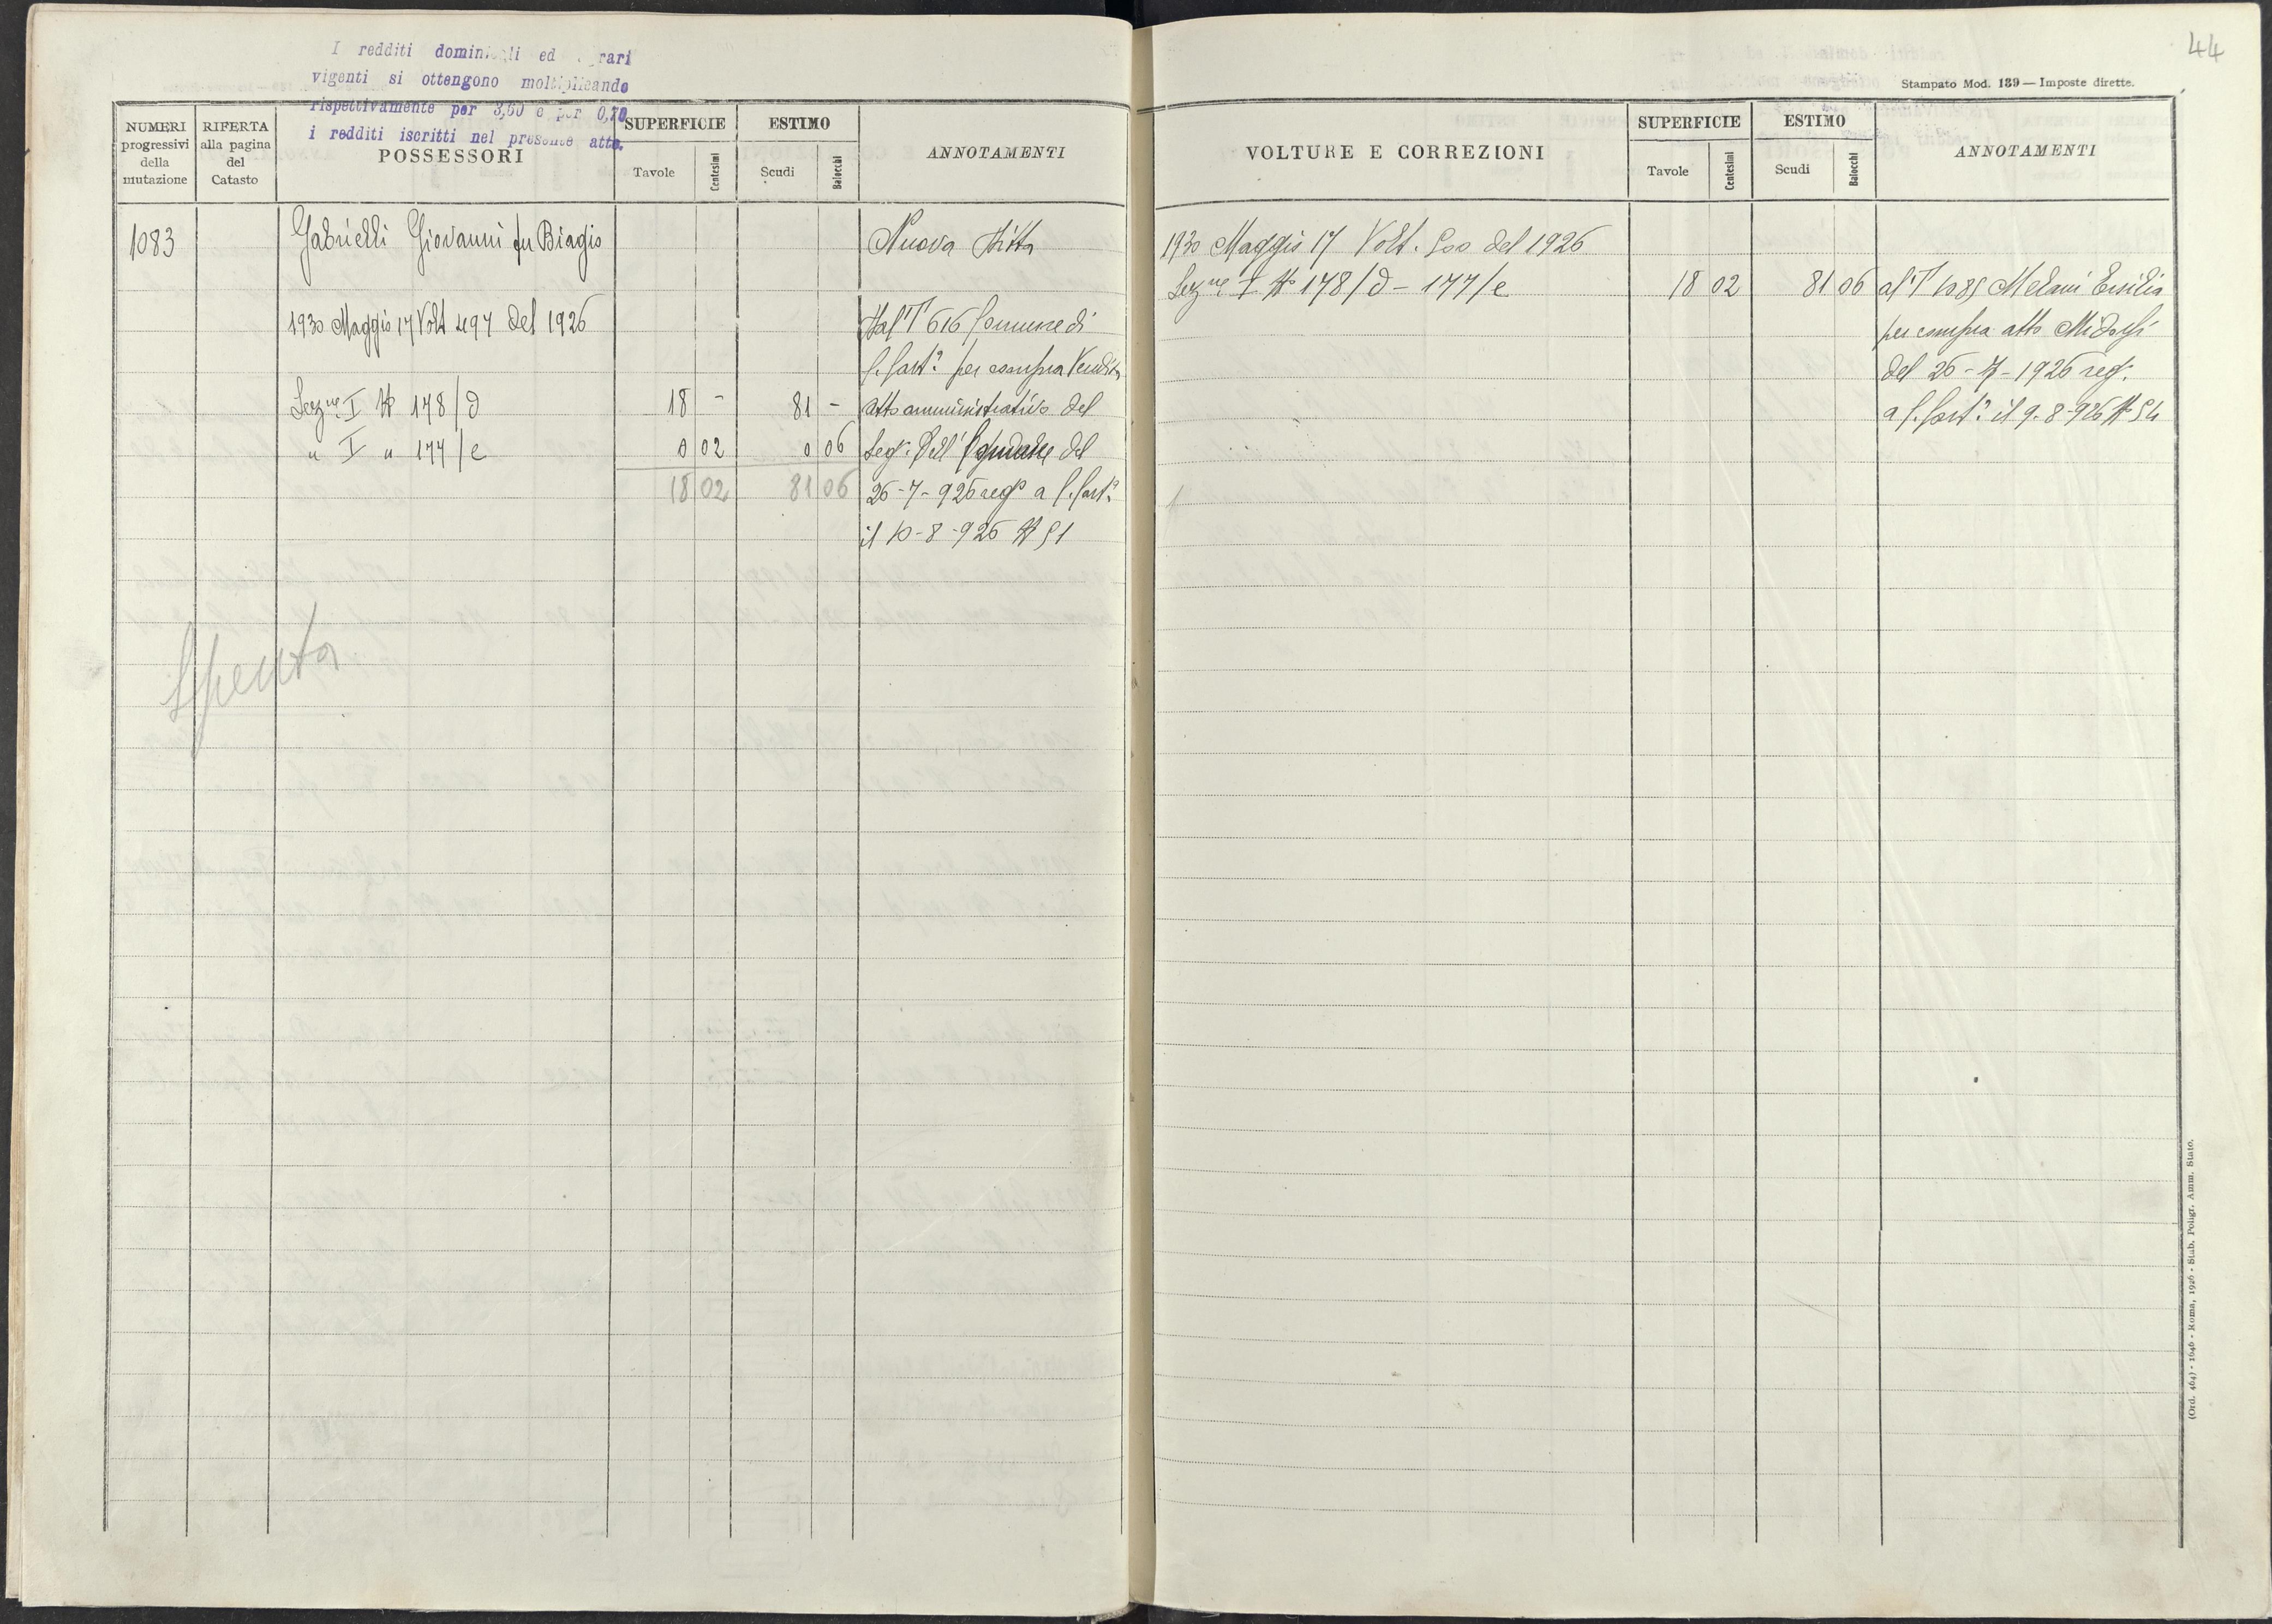 I redditi dominicali ed agrari
vigenti si ottengono moltiplicando
rispettivamente per 3,60 e per 0,70
i redditi iscritti nel presente atto.
NUMERI
progressivi
della
mutazione
RIFERTA
alla pagina
del
Catasto
POSSESSORI
SUPERFICIE
Tavole
Centesimi
ESTIMO
Scudi
Baiocchi
ANNOTAMENTI
1083
Gabrielli Giovanni fu Biagio
Nuova Ditta
1930 Maggio 17 Volt 497 del 1926
Dal T 616 Comune di
per compra Vendita
Sezne I No 178/d
18 -
81 -
atto amministrativo del
" I " 177/e
0 02
0 06
Seg. dell' del
18 02
81 06
26-7-926 reg° a
il 10-8-926 No 51
Spenta
44
Stampato Mod. 139 — Imposte dirette.
VOLTURE E CORREZIONI
SUPERFICIE
Tavole
Centesimi
ESTIMO
Scudi
Baiocchi
ANNOTAMENTI
1930 Maggio 17 Volt. 500 del 1926
Sezne I No 178/d - 177/e
18 02
81 06
al T 1085 Melani Ersilia
per compra atto
del 26-7-1926 reg.
a il 9-8-926 No 54
(Ord. 464) - 1646 - Roma, 1926 - Stab. Poligr. Amm. Stato.